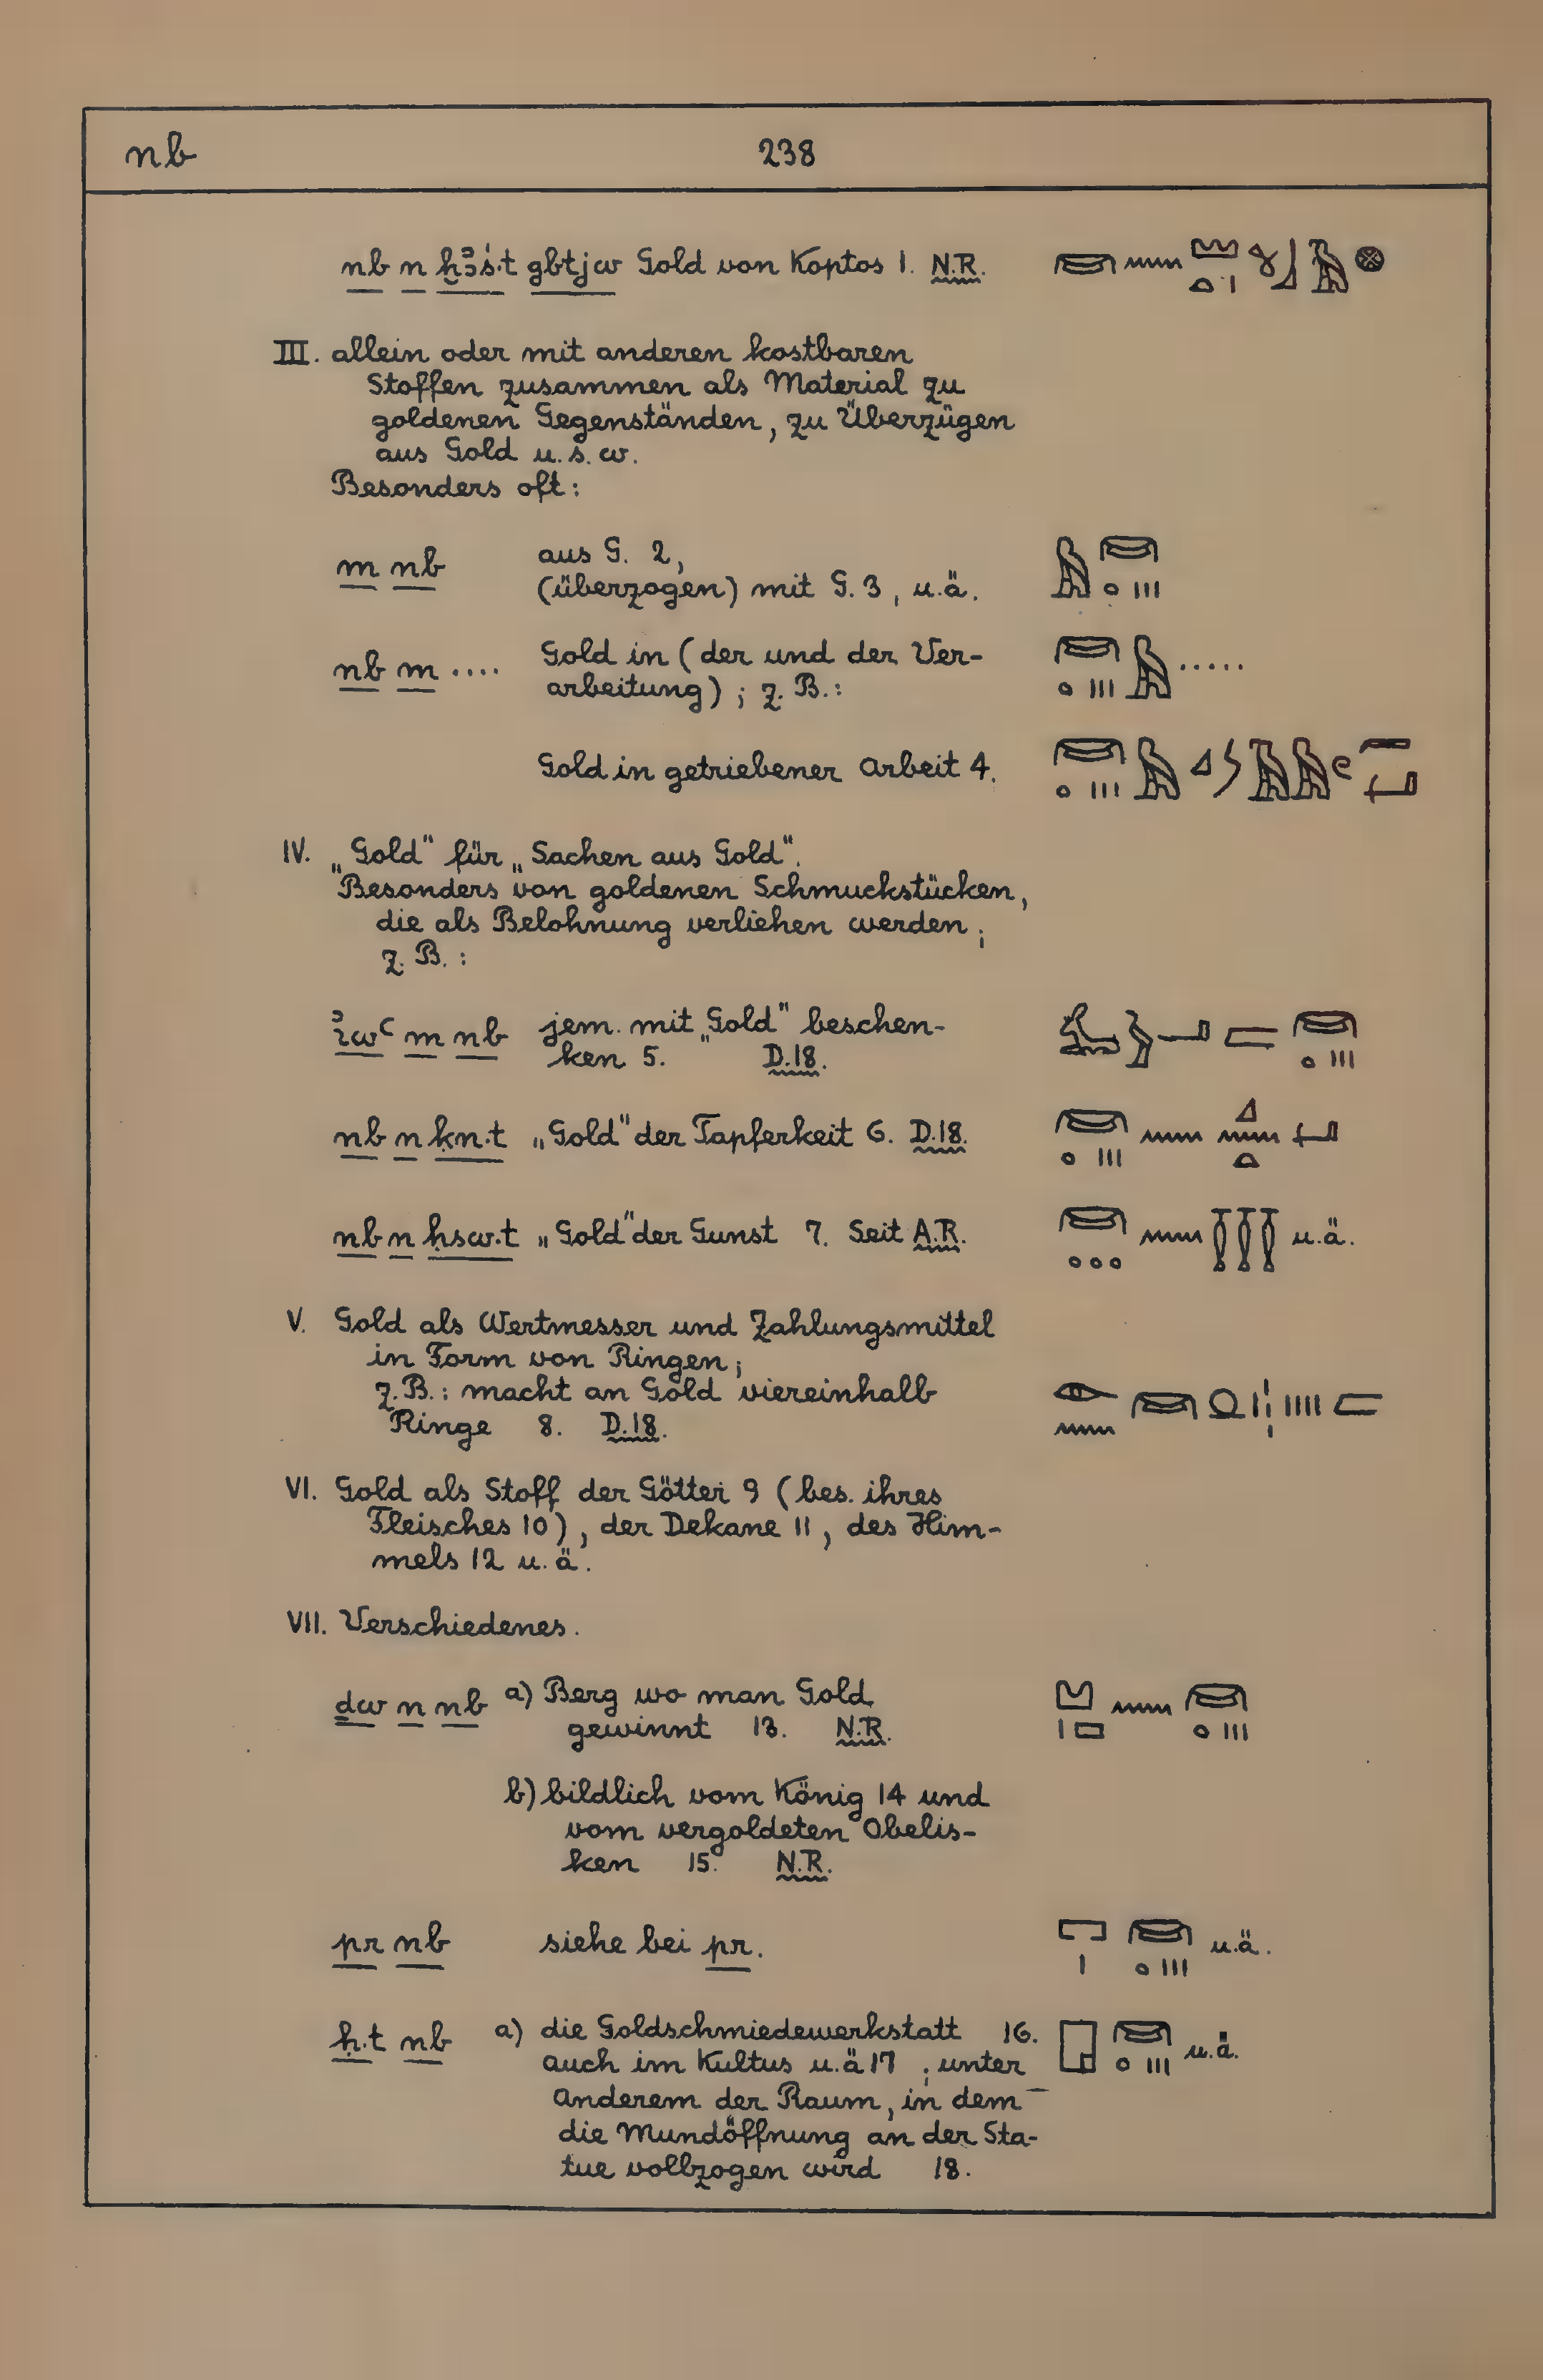 nb 238
nb n ḫꜣś.t gbtjw Gold von Koptos 1. N.R.
III. allein oder mit anderen kostbaren
Stoffen zusammen als Material zu
goldenen Gegenständen, zu Überzügen
aus Gold u.s.w.
Besonders oft:
m nb aus G. 2,
(überzogen) mit G. 3, u.ä.
nb m .... Gold in (der und der Ver-
arbeitung); z.B.:
Gold in getriebener Arbeit 4.
IV. „Gold" für „Sachen aus Gold".
Besonders von goldenen Schmuckstücken,
die als Belohnung verliehen werden;
z.B.:
ꜣwꜥ m nb jem. mit „Gold" beschen-
ken 5. D.18.
nb n ḳn.t „Gold" der Tapferkeit 6. D.18.
nb n ḥsw.t „Gold" der Gunst 7. Seit A.R. u.ä.
V. Gold als Wertmesser und Zahlungsmittel
in Form von Ringen;
z.B.: macht an Gold viereinhalb
Ringe 8. D.18.
VI. Gold als Stoff der Götter 9 (bes. ihres
Fleisches 10), der Dekane 11, des Him-
mels 12 u.ä.
VII. Verschiedenes.
ḏw n nb a) Berg wo man Gold
gewinnt 13. N.R.
b) bildlich vom König 14 und
vom vergoldeten Obelis-
ken 15. N.R.
pr nb siehe bei pr. u.ä.
ḥ.t nb a) die Goldschmiedewerkstatt 16. u.ä.
auch im Kultus u.ä 17; unter
anderem der Raum, in dem
die Mundöffnung an der Sta-
tue vollzogen wird 18.